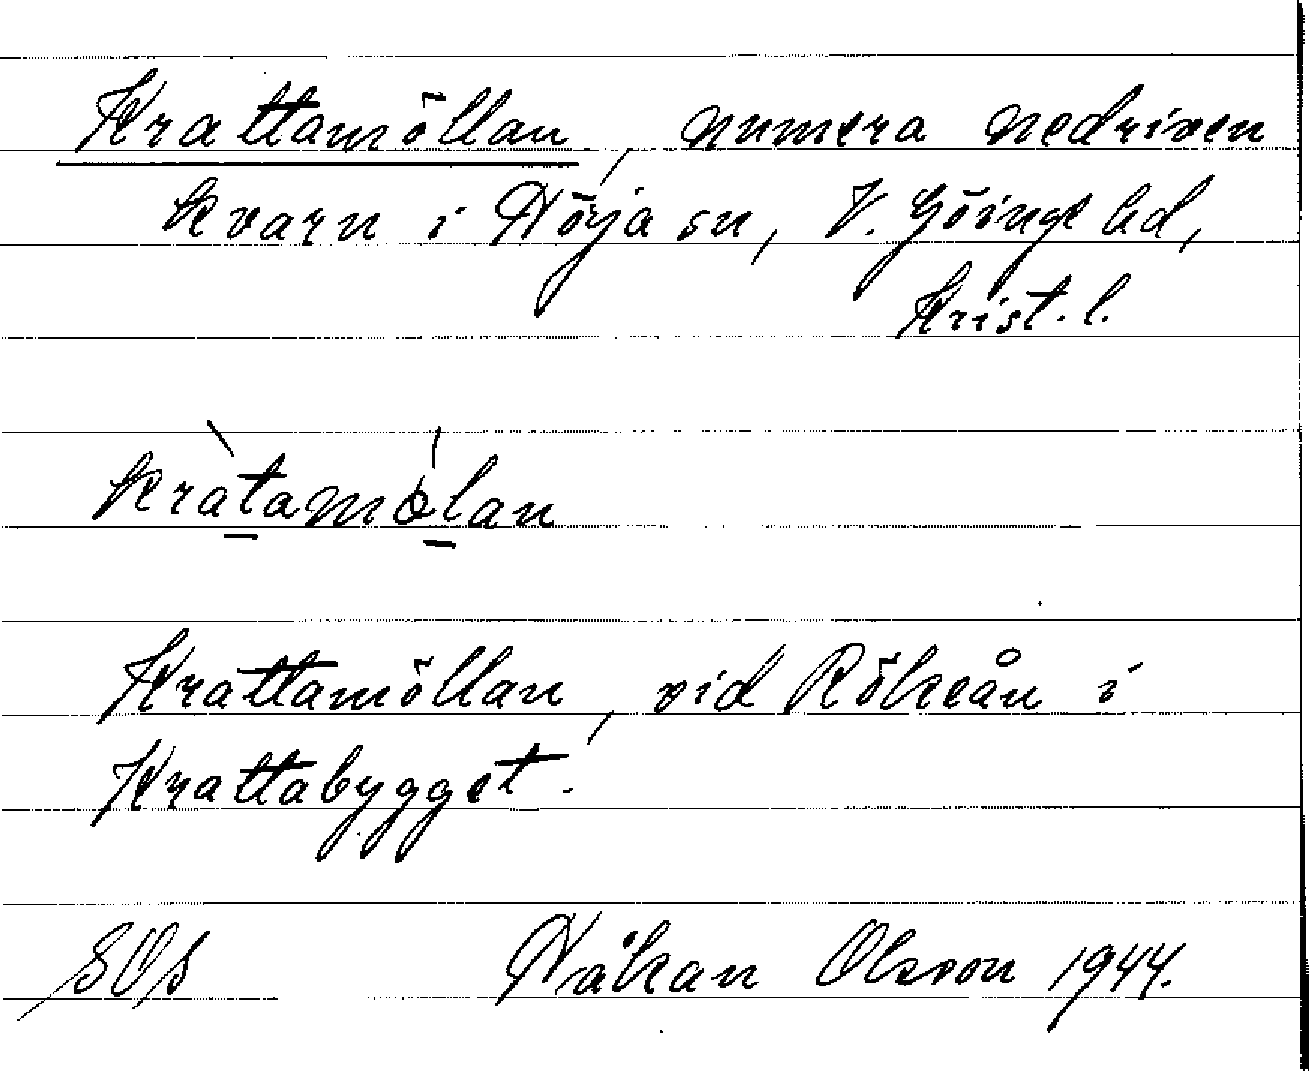 Krattamöllan, numera nedriven
kvarn i Nörja sn, V. Göinge hd,
Krist. l.
kràtamölan
Krattamöllan, vid Rökeån i
Krattabygget.
SOS Håkan Olsson 1944.